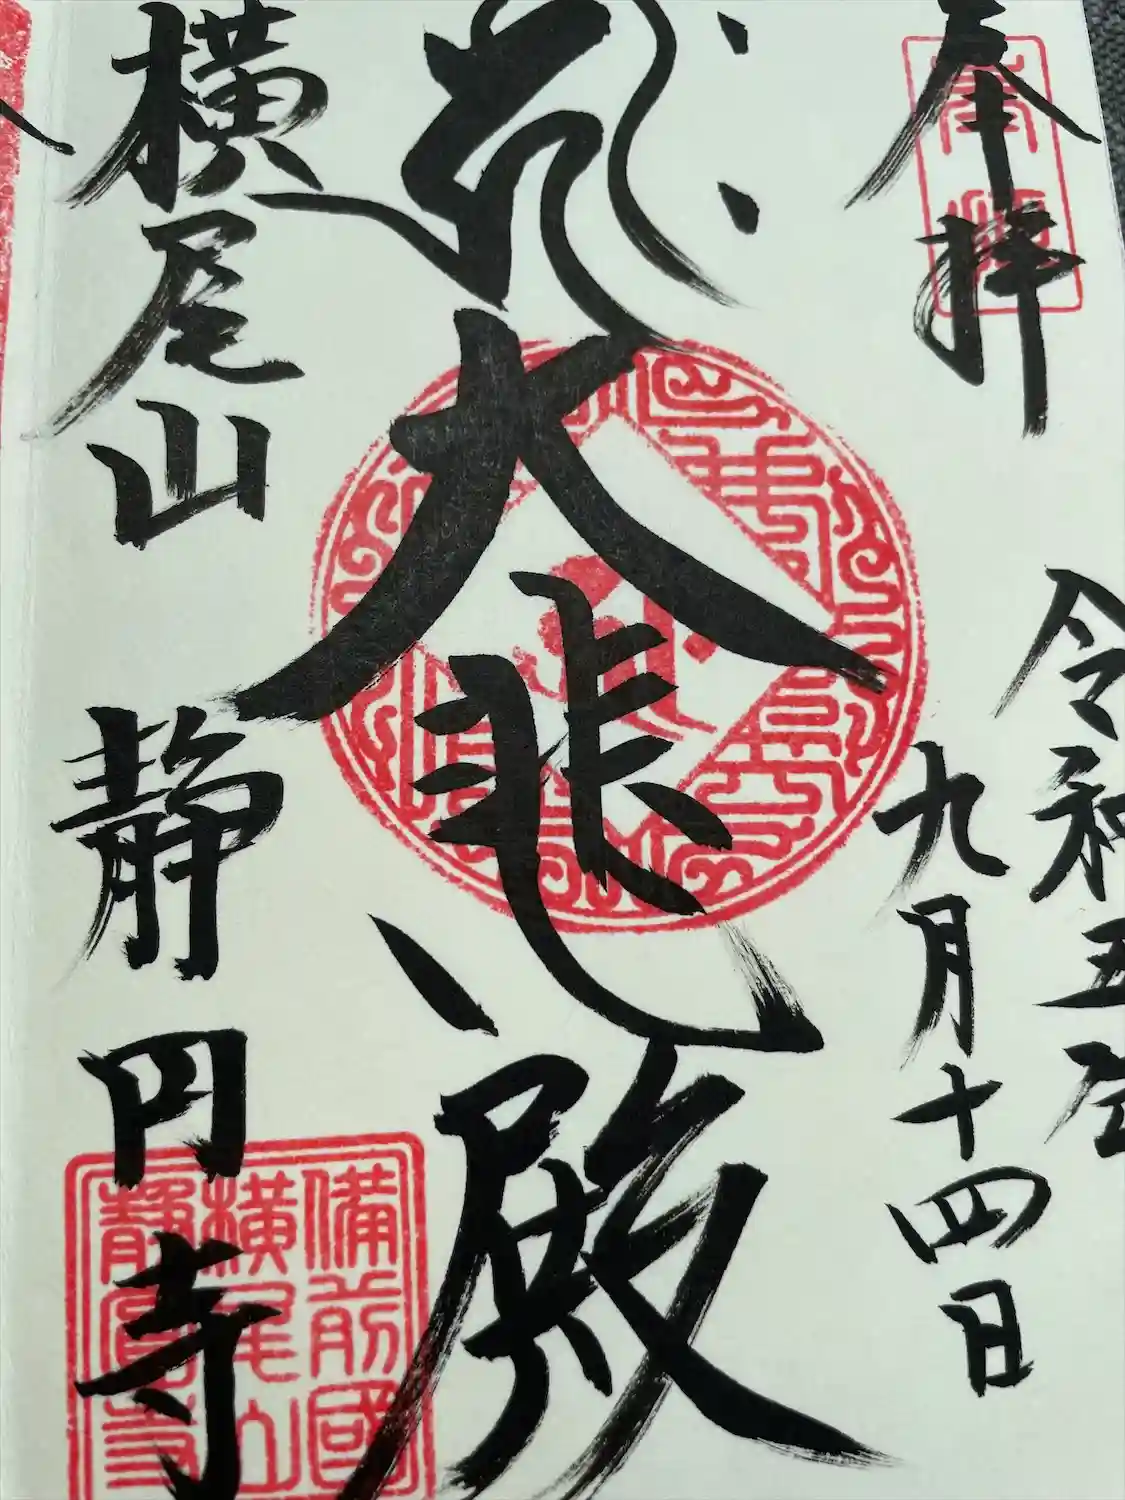 奉拝
令和五年
九月十四日
大悲殿
横尾山 静円寺
奉拝
備前國
横尾山
静圓寺